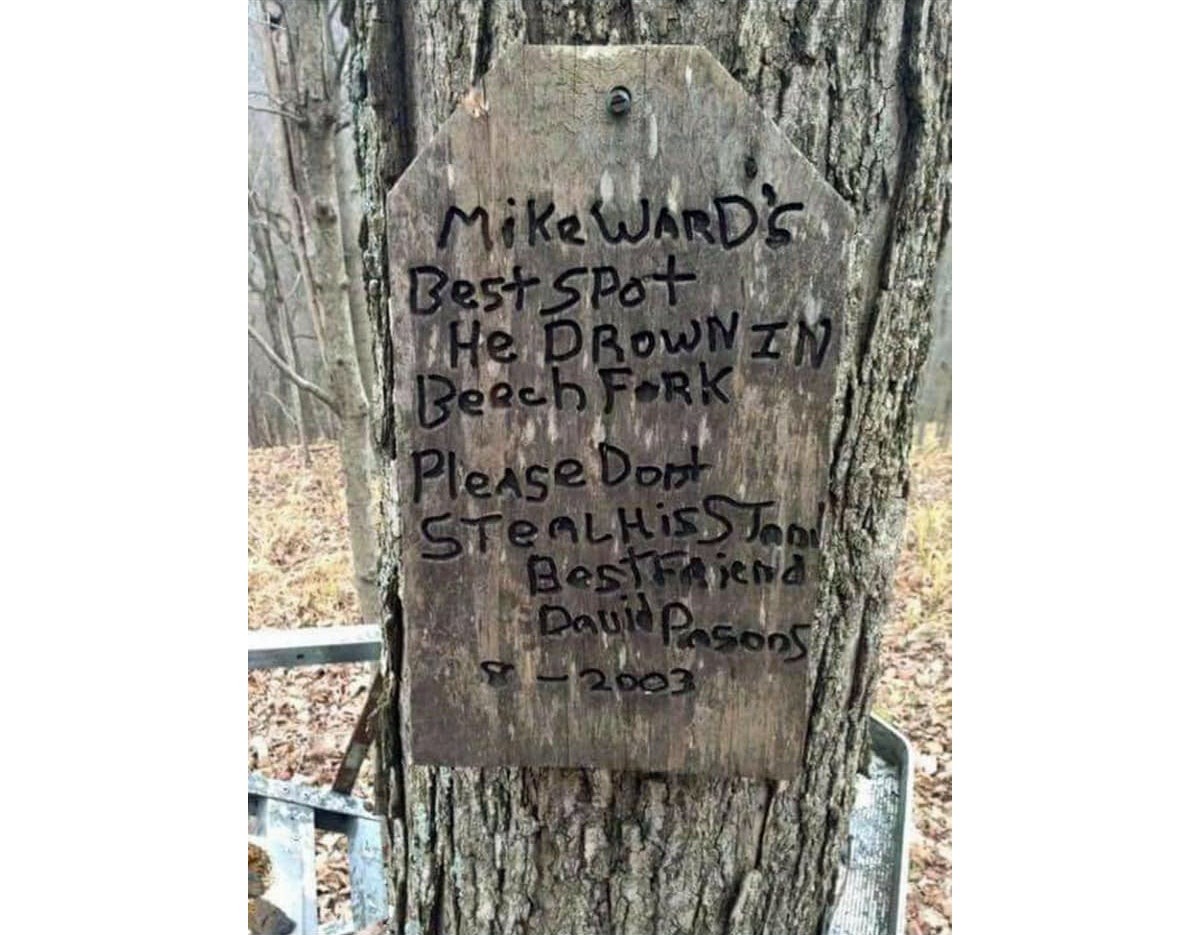 Mike WARD's
Best SPot
He DROWN IN
Beech FoRK
PleAse Dont
STeAL His STand
Best FRiend
David Pasons
8 - 2003